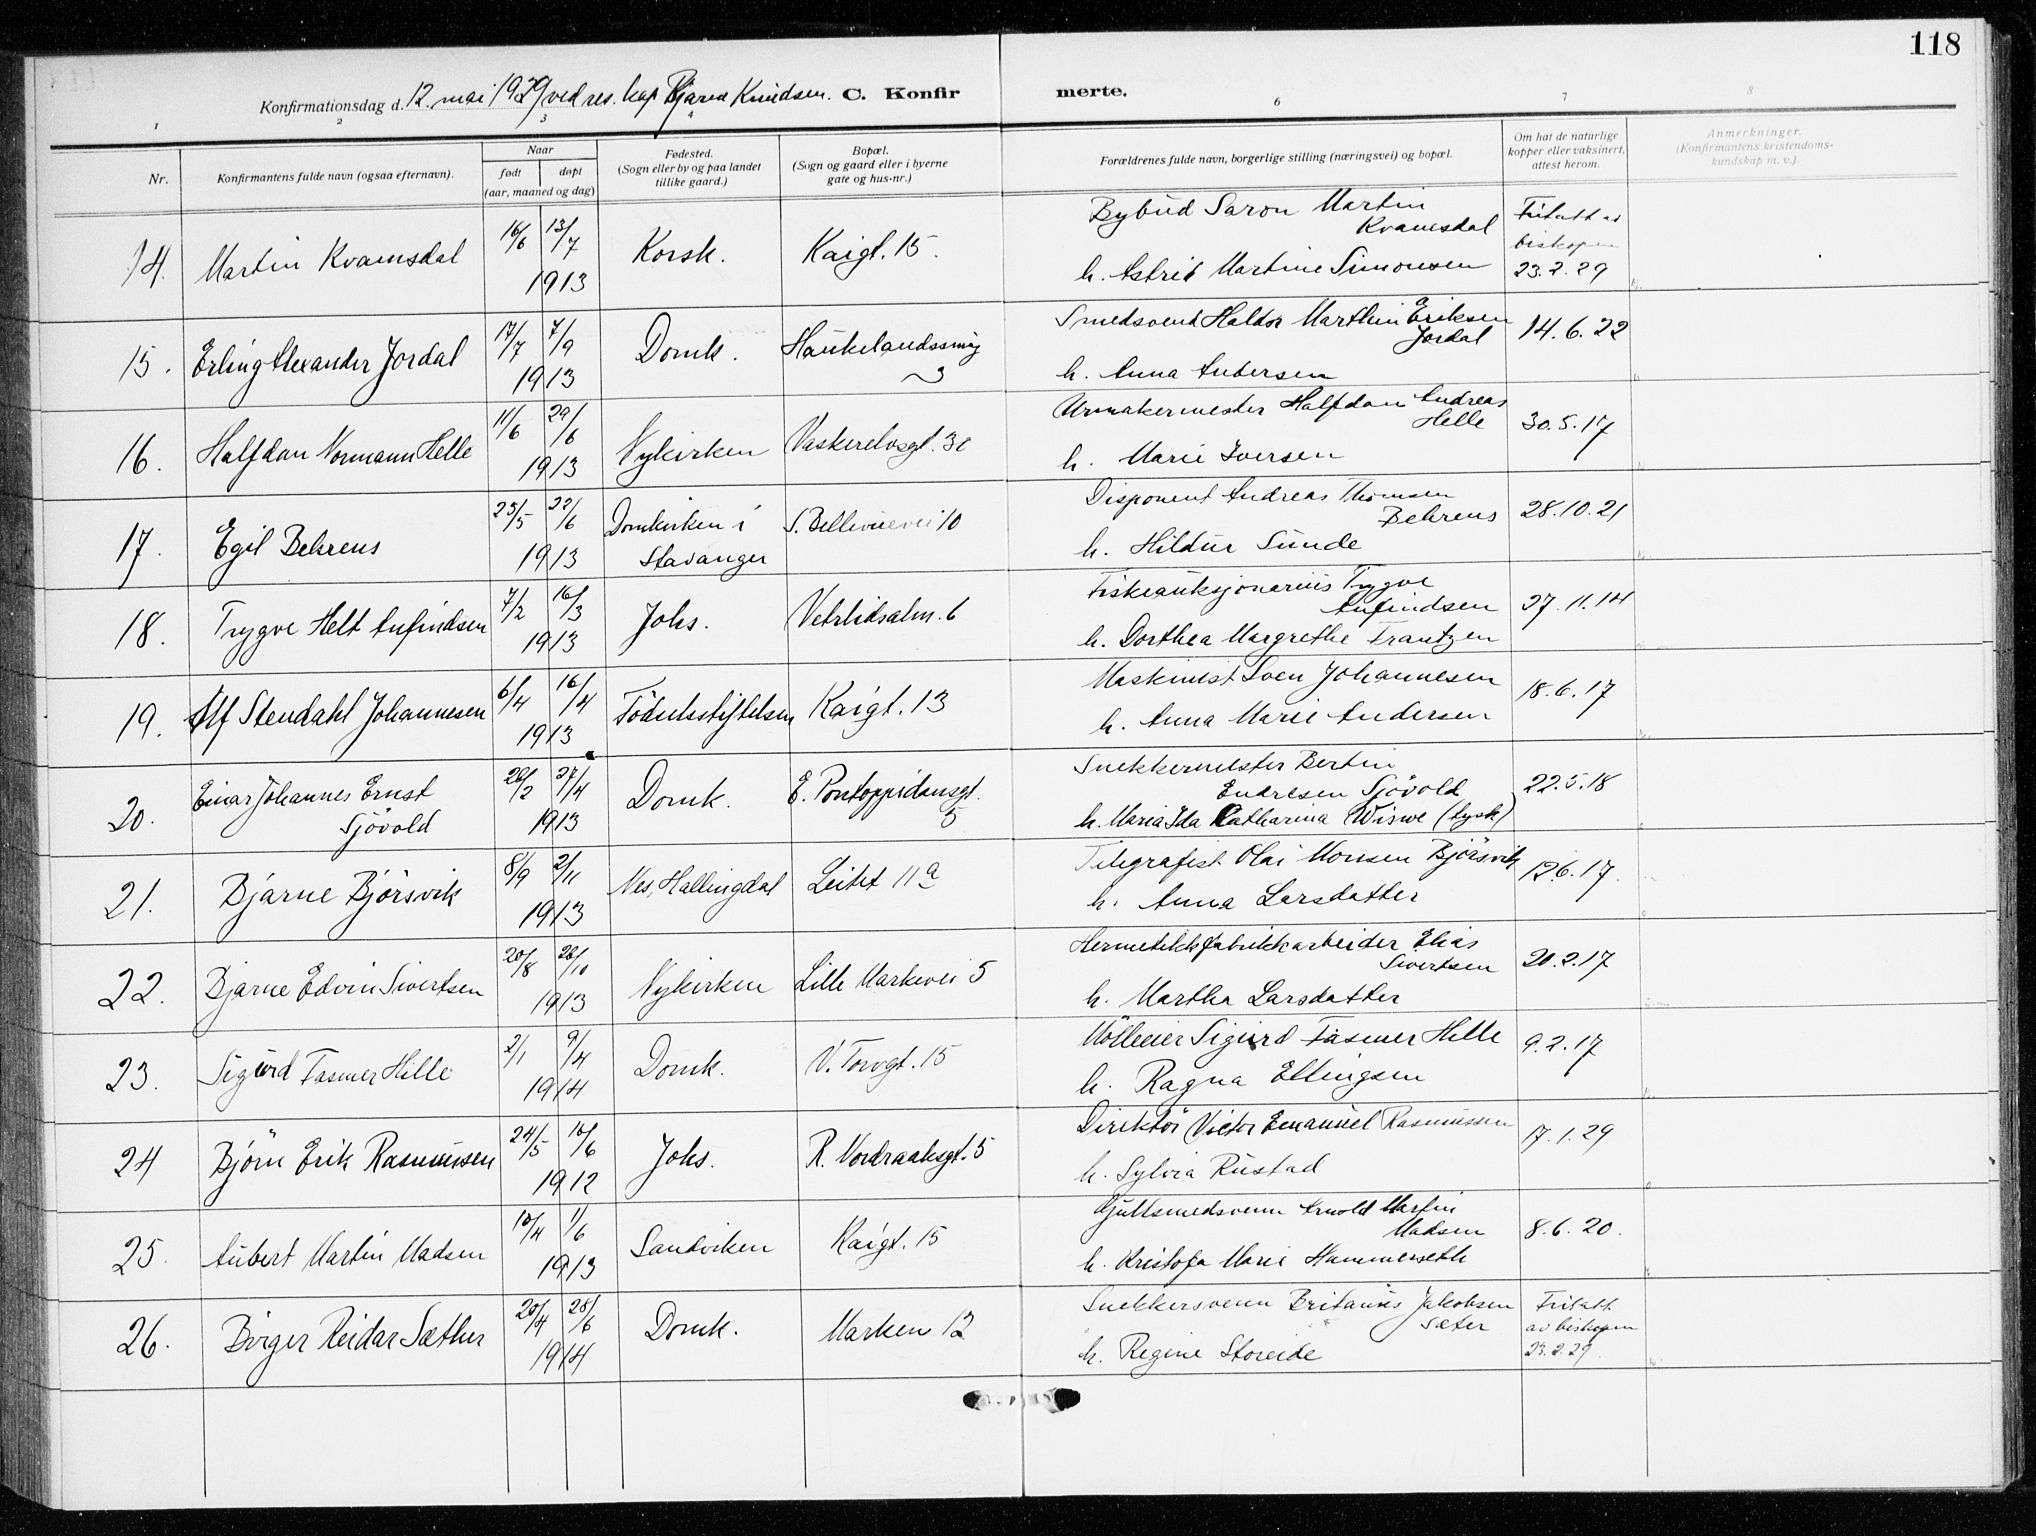 118
Konfirmationsdag d. 12. mai 1929 ved res. kap Bjarne Knudsen. C. Konfir merte.
1 2 3 4 6 7 8
Nr.
Konfirmantens fulde navn (ogsaa efternavn).
Naar
født døpt
(aar, maaned og dag)
Fødested.
(Sogn eller by og paa landet
tillike gaard.)
Bopæl.
(Sogn og gaard eller i byerne
gate og hus-nr.)
Forældrenes fulde navn, borgerlige stilling (næringsvei) og bopæl.
Om hat de naturlige
kopper eller vaksinert,
attest herom.
Anmerkninger.
(Konfirmantens kristendoms-
kundskap m. v.).
14. Martin Kvamsdal 16/6 13/7 1913 Korsk. Kaigt. 15.
Bybud Saron Martin
Kvamsdal
h. Astrid Martine Simonsen
Fritatt av
biskopen
23.2.29
15. Erling Alexander Jordal 17/7 7/9 1913 Domk. Haukelandssving
3
Smedsvend Haldor Marthin Eriksen
Jordal
h. Anna Andersen
14.6.22
16. Halfdan Normann Helle 11/6 29/6 1913 Nykirken Vaskerelvsgt.
Urmakermester Halfdan Andreas
Helle
h. Marie Iversen
30.5.17
17. Egil Behrens 25/5 22/6 1913
Domkirken i
Stavanger
S. Bellevuevei 10
Disponent Andreas Thomsen
Behrens
h. Hildur Sunde
28.10.21
18. Trygve Helt Anfindsen 7/2 16/3 1913 Johs. Vetrlidsalm. 6
Fiskeauksjonarius Trygve
Anfindsen
h. Dorthea Margrethe Frantzen
27.11.14
19. Alf Stendahl Johannesen 6/4 16/4 1913 Födselsstiftelsen Kaigt. 13
Maskinist Sven Johannesen
h. Anna Marie Andersen
18.6.17
20. Einar Johannes Ernst
Sjövold
1913 27/4 Domk. E. Pontoppidansgt.
5
Snekkermester Bertin
Endresen Sjövold
h. Maria Ida Catharina Wiswe (tysk)
22.5.18
21. Bjarne Björsvik 8/9 2/11 1913 Nes, Hallingdal Leitet 11a
Telegrafist Olai Monsen Björsvik
h. Anna Larsdatter
12.6.17.
22. Bjarne Edvin Sivertsen 20/8 26/10 1913 Nykirken Lille Markevei 5
Hermetikkfabrikkarbeider Elias
Sivertsen
h. Martha Larsdatter
20.2.17
23. Sigurd Fasmer Hille 2/1 9/4 1914 Domk. V. Torvgt. 15
Sigurd Fasmer Hille
h. Ragna Ellingsen
9.2.17
24 Björn Erik Rasmussen 24/5 16/6 1912 Johs. R. Nordraaksgt. 5
Direktör Victor Emanuel Rasmussen
h. Sylvia Rustad
17.1.29
25. Aubert Martin Madsen 10/4 1/6 1913 Sandviken Kaigt. 15
Gullsmedsvenn Arnold Martin
Madsen
h. Kristofa Marie Hammerseth
8.6.20.
26. Birger Reidar Sæther 20/4 28/6 1914 Domk. Marken 12
Snekkersvenn Britanus Jakobsen
Sæter
h. Regine Storeide
Fritatt
av biskopen
23.2.29.